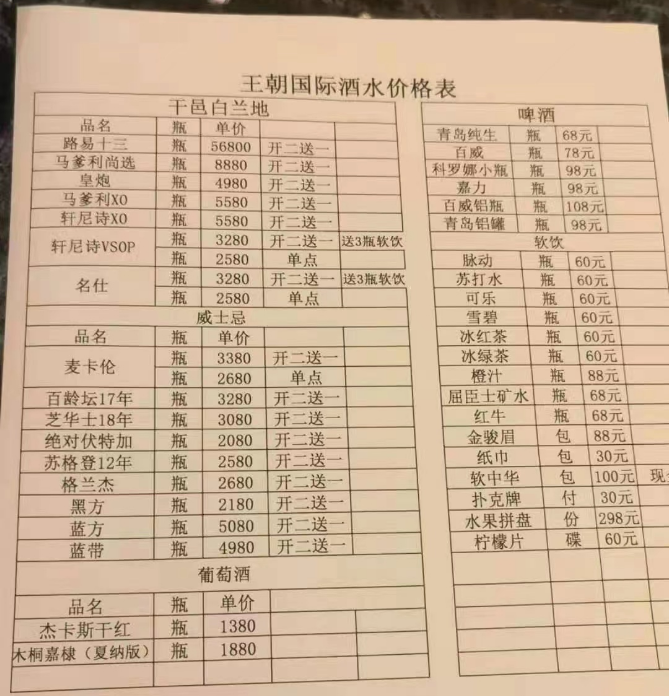 王朝国际酒水价格表
干邑白兰地
品名 瓶 单价
路易十三 瓶 56800 开二送一
马爹利尚选 瓶 8880 开二送一
皇炮 瓶 4980 开二送一
马爹利XO 瓶 5580 开二送一
轩尼诗XO 瓶 5580 开二送一
轩尼诗VSOP 瓶 3280 开二送一 送3瓶软饮
瓶 2580 单点
名仕 瓶 3280 开二送一 送3瓶软饮
瓶 2580 单点
威士忌
品名 瓶 单价
麦卡伦 瓶 3380 开二送一
瓶 2680 单点
百龄坛17年 瓶 3280 开二送一
芝华士18年 瓶 3080 开二送一
绝对伏特加 瓶 2080 开二送一
苏格登12年 瓶 2580 开二送一
格兰杰 瓶 2680 开二送一
黑方 瓶 2180 开二送一
蓝方 瓶 5080 开二送一
蓝带 瓶 4980 开二送一
葡萄酒
品名 瓶 单价
杰卡斯干红 瓶 1380
木桐嘉棣（夏纳版） 瓶 1880
啤酒
青岛纯生 瓶 68元
百威 瓶 78元
科罗娜小瓶 瓶 98元
嘉力 瓶 98元
百威铝瓶 瓶 108元
青岛铝罐 瓶 98元
软饮
脉动 瓶 60元
苏打水 瓶 60元
可乐 瓶 60元
雪碧 瓶 60元
冰红茶 瓶 60元
冰绿茶 瓶 60元
橙汁 瓶 88元
屈臣士矿水 瓶 68元
红牛 瓶 68元
金骏眉 包 88元
纸巾 包 30元
软中华 包 100元 现
扑克牌 付 30元
水果拼盘 份 298元
柠檬片 碟 60元